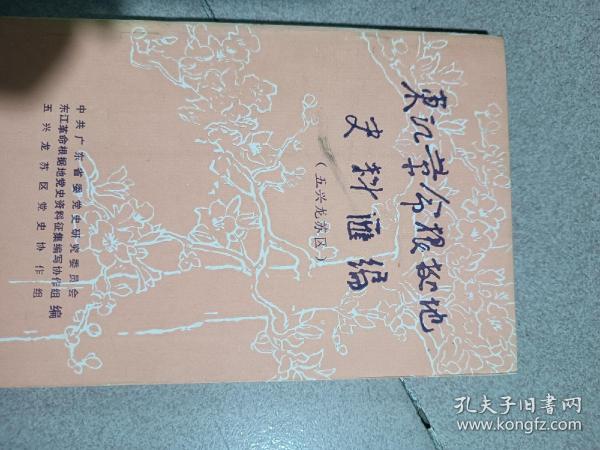 东江革命根据地
史料汇编
（五兴龙苏区）
中共广东省委党史研究委员会
东江革命根据地党史资料征集编写协作组
五兴龙苏区党史协作组
编
孔夫子旧书网
www.kongfz.com